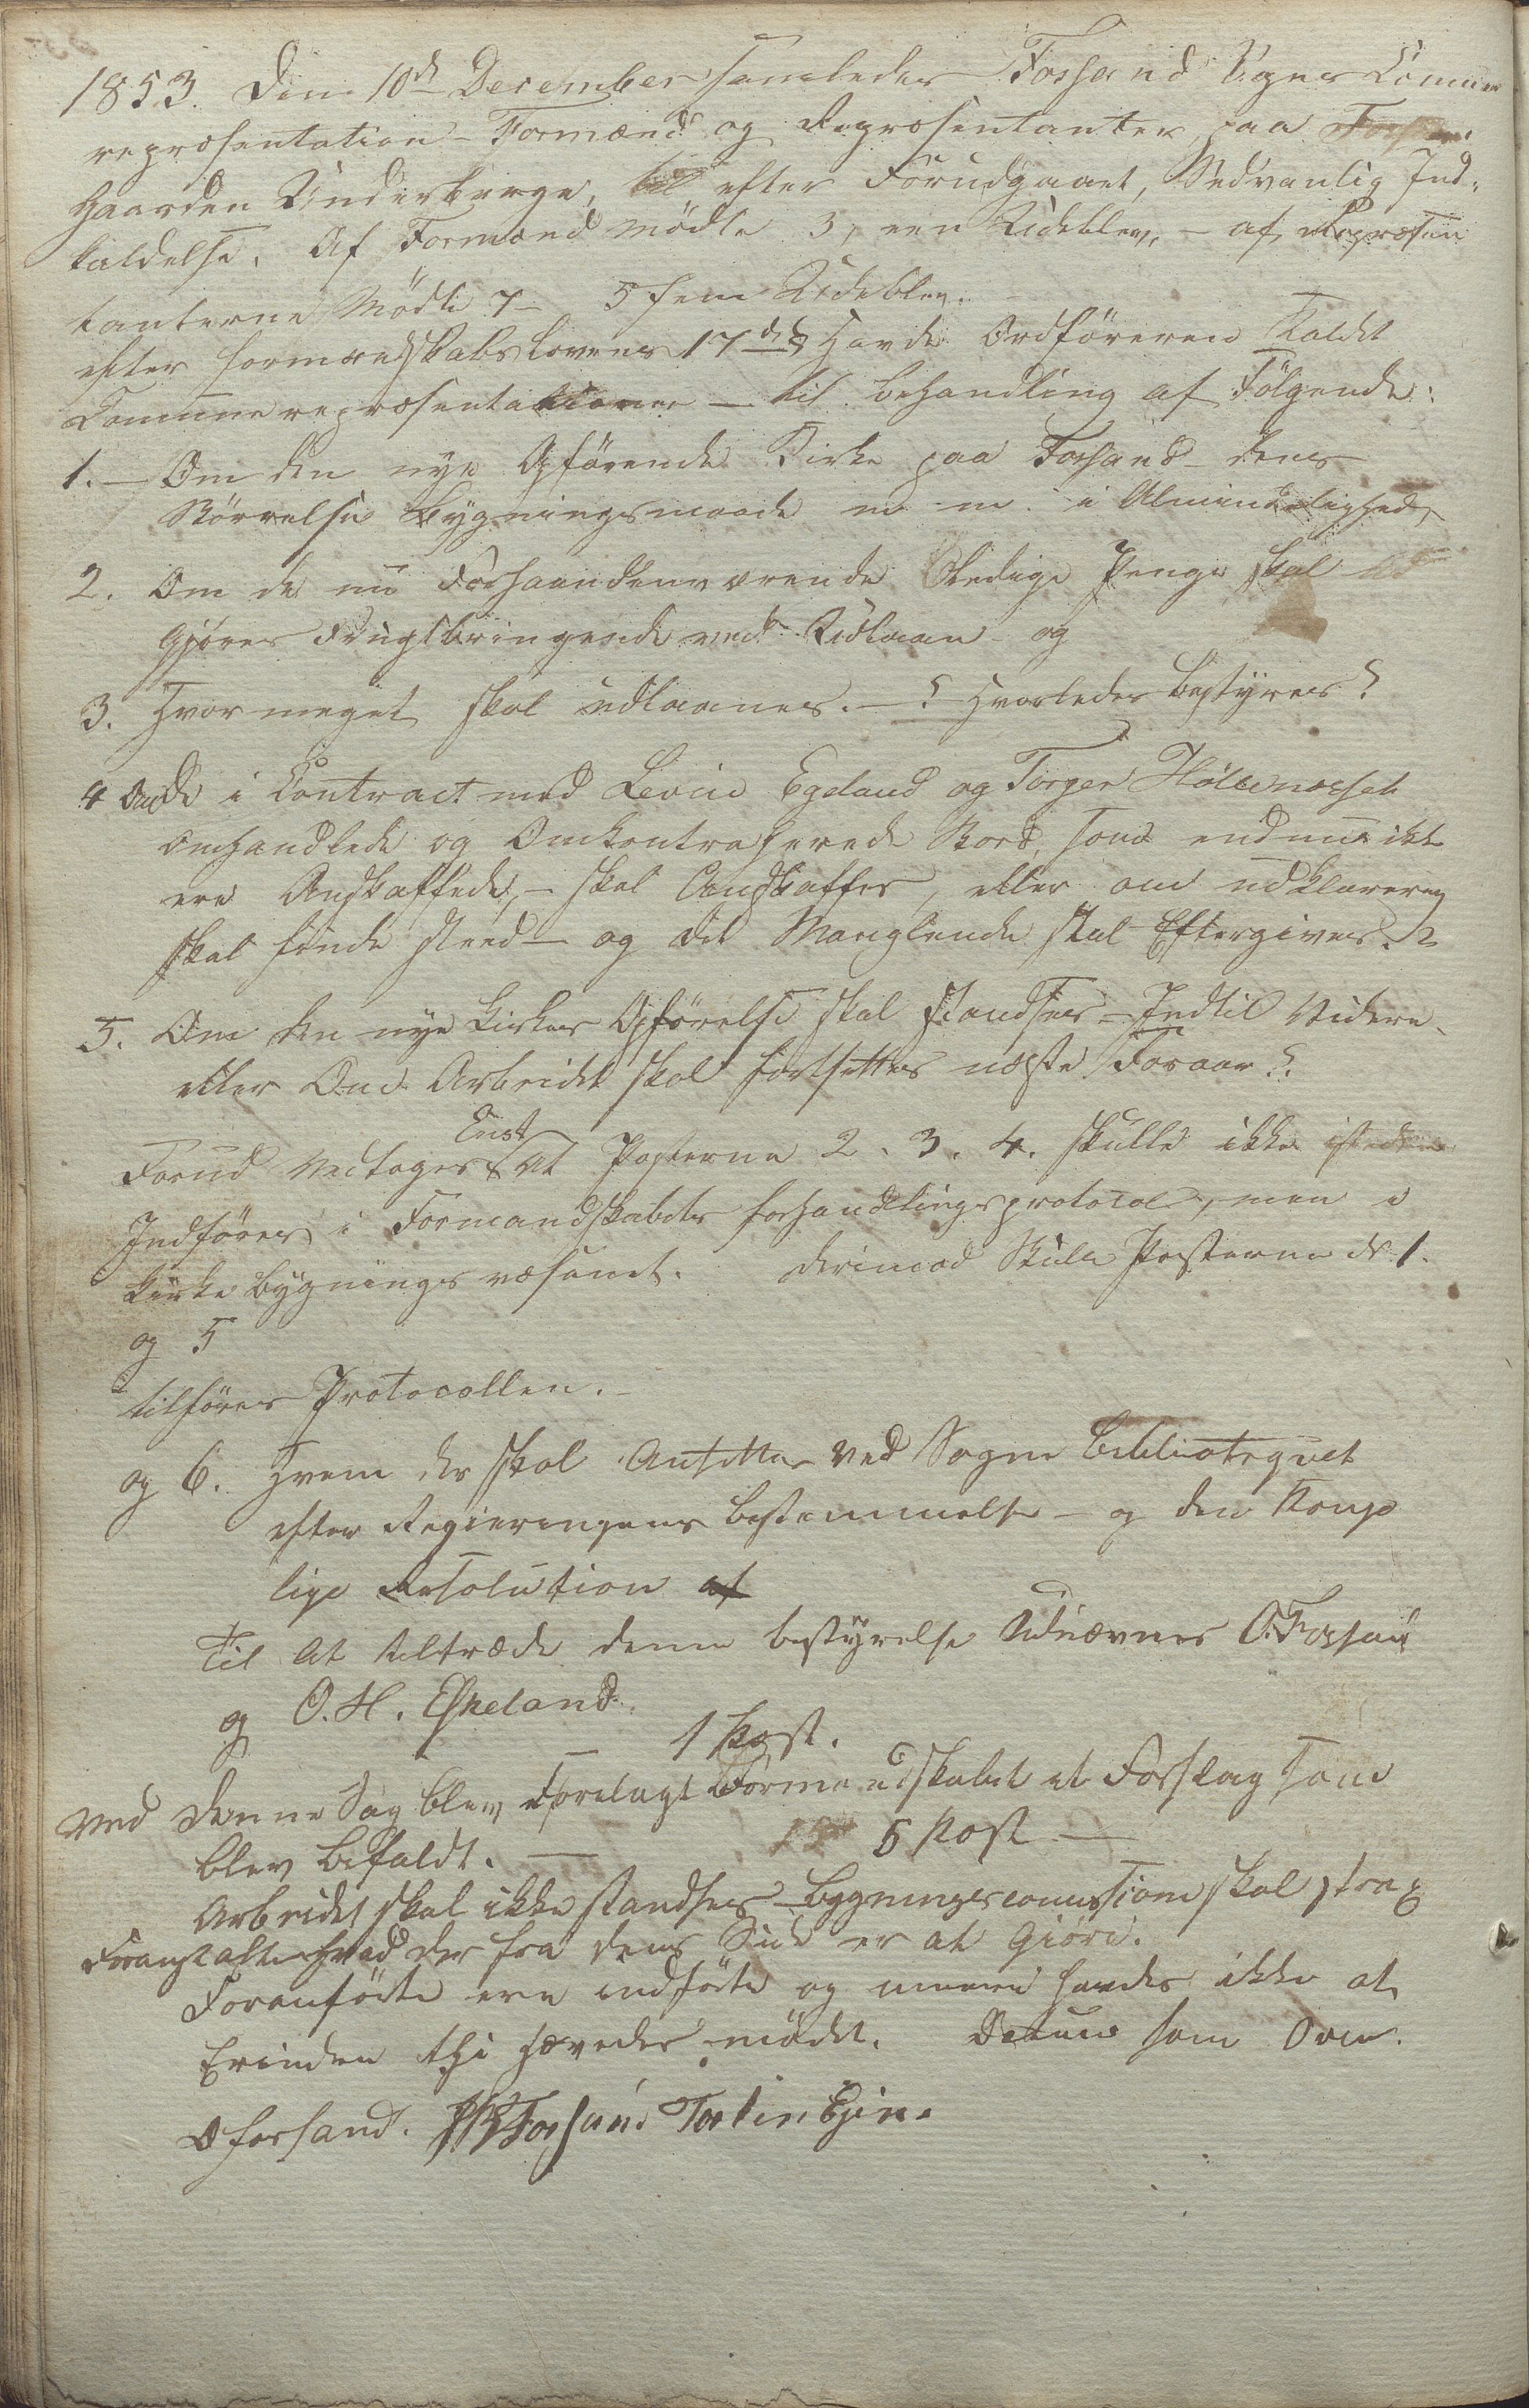 1853. Den 10de December samledes Fossand Sogns Commune
repræsentation - Formænd og Repræsentanter paa
Gaarden Underberge, efter Forudgaaet, Sedvanlig Ind-
kaldelse. Af Formænd mødte 3, een Udeblev, - af Repræsen
tanterne Mødte 7 - 5 fem Udeblev.
efter formandskabslovens 17de § Havde Ordføreren Kaldt
Communerepræsentationen - til behandling af Følgende:
1. - Om den nye Opførende Kirke paa Fossand - dens
Størrelse Bygningsmaade m. m. i Almindelighed,
2. Om de nu Forhaandenværende Ledige Penge skal
Gjøres Frugtbringende ved Udlaan - og
3. Hvor meget skal udlaanes. - ? Hvorledes bestyres?
4 Om de i Contract med Levin Egeland og Torger Hølleneslet
omhandlede og Omkontraherede Bord, som endnu ikke
ere Anskaffede, - skal Anskaffes, eller om udklarering
skal finde sted - og det Manglende skal Eftergives. ?
5. Om den nye kirkes Opførelse skal standses - Indtil Videre -
eller Om Arbeidet skal fortsettes næste Foraar?
Forud vedtages Enst At Posterne 2. 3. 4. skulle ikke
Indføres i Formandskabets forhandlingsprotocol, men i
kirke bygnings væsenet. derimod Skulle Posterne № 1.
og 5
tilføres Protocollen. -
og 6. Hvem der skal Ansettes ved Sogne bibliotequet
efter Regieringens bestemmelse - og den Konge
lige Resolution af
Til At tiltræde denne bestyrelse Udnævnes O. Fossan
og O. H. Eskeland.
1 Post.
Ved denne Sag blev Forelagt Formandskabet et Forslag som
blev bifaldt. -
5 Post -
Arbeidet skal ikke standses - Bygningscomissionen skal strax
Foranstalte hvad der fra dens Side er at Giøre.
Foranførte ere indførte og meere havdes ikke at
Erindre thi hævedes mødet. Datum som Oven.
O Forsand. Fossand Torbin Eine